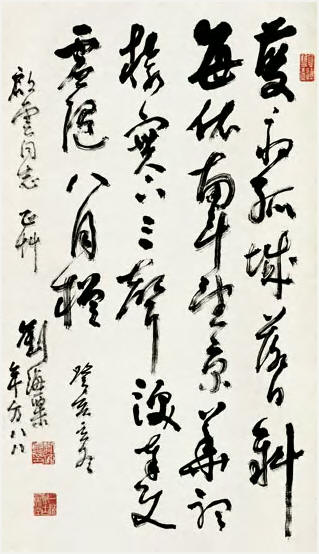 夔府孤城落日斜
每依南斗望京華聽
猿實下三聲淚奉使
虛隨八月槎
癸亥
啟雲同志正
劉海粟
年方八八